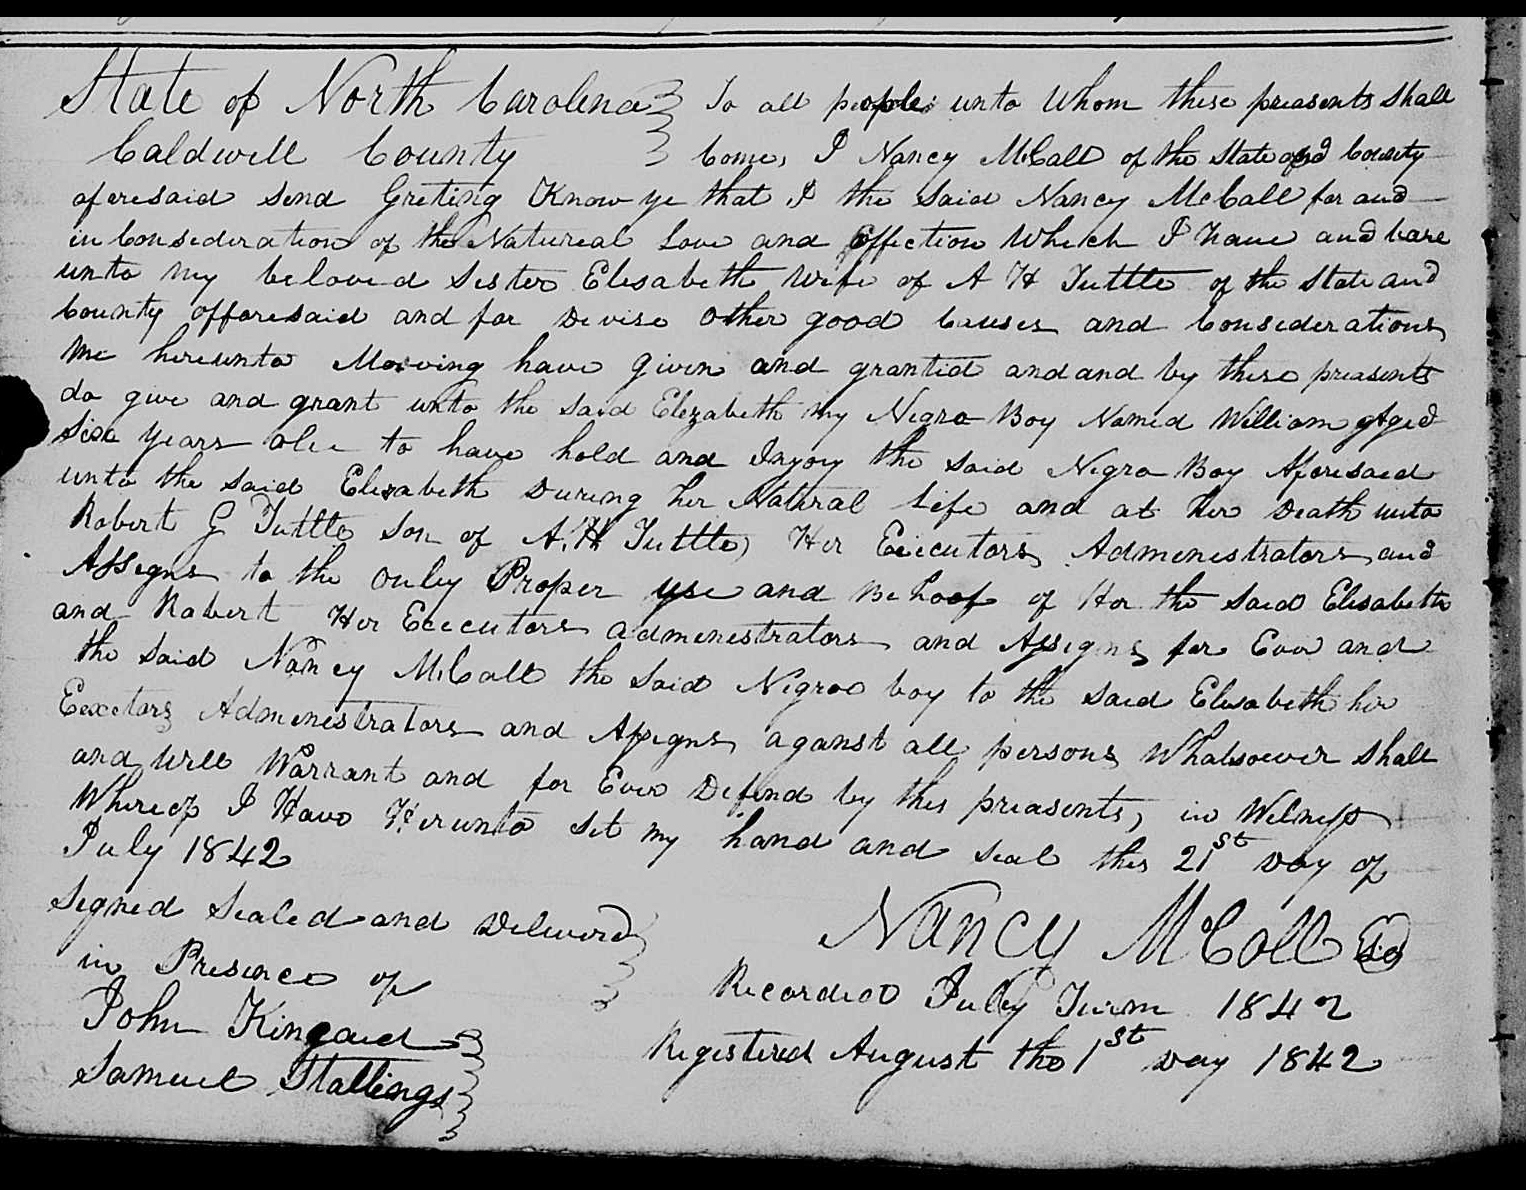 State of North Carolina } To all people unto Whom these preasents shall
Caldwell County } Come, I Nancy McCall of the State and County
aforesaid send Greting Know ye that I the said Nancy McCall for and
in Consideration of the Natureal Love and Effection Which I have and bare
unto my beloved Sister Elisabeth Wife of A H Tuttle of the State and
County afforesaid and for Devise Other good Causes and Considerations
me hereunto Moving have given and granted and and by these preasents
do give and grant unto the said Elezabeth my Negro Boy Named William Aged
Six years old to have hold and Injoy the said Negro Boy Aforesaid
unto the said Elisabeth During her Natural Life and at her Death unto
Robert G Tuttle Son of A. H. Tuttle, Her Executors Admenestrators and
Assigns to the Only Proper use and Behoof of Her the said Elisabeth
and Robert Her Executors admenestrators and Assigns for Ever and
the said Nancy McCall the said Negroe boy to the said Elisabeth her
Exectors Admenestrators and Assigns aganst all persons Whatsoever shall
and Will Warrant and for Ever Defend by this preasents, in Witness
Whereof I Have Herunto set my hand and seal this 21st Day of
July 1842
Segned Sealed and Deliverd } Nancy McCall
in Presence of } Recorded July Turm 1842
John Kincaid } Registered August the 1st Day 1842
Samuel Stallings }